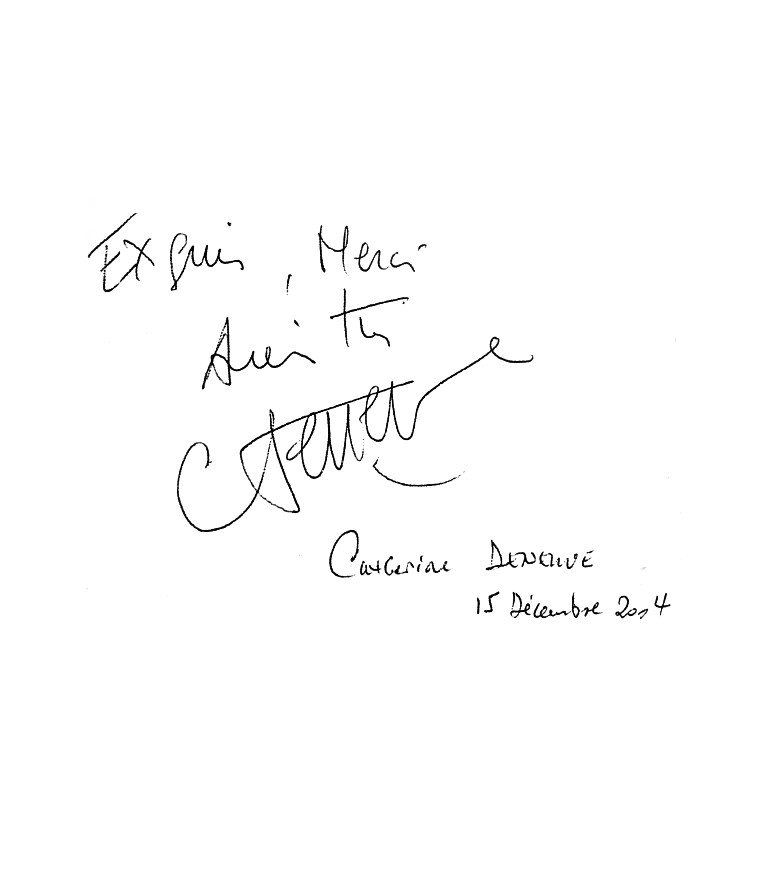 Exquis, Merci
Catherine DENEUVE
15 Décembre 2004